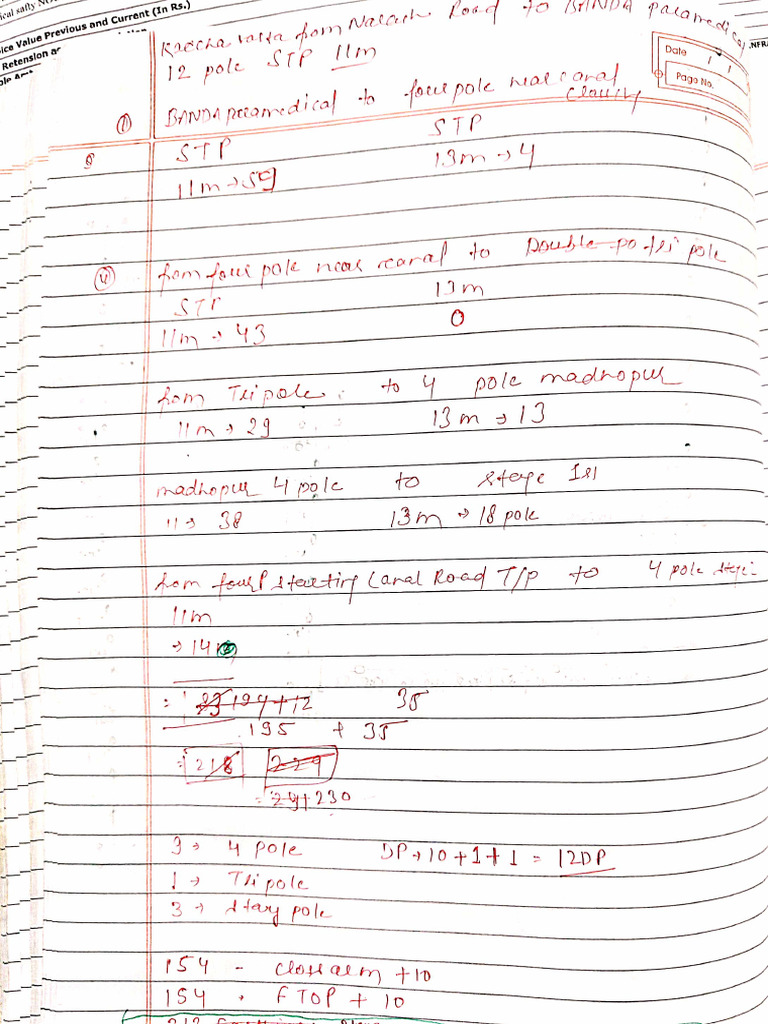 ical safty NO
ice Value Previous and Current (In Rs.)
Retension as
Kaccha rasta from Nasach Road to BANDA paramedical
12 pole STP 11m
Date / /
Page No.
NFRA
① BANDA paramedical to four pole near canal
STP STP
11m → 59 13m → 4
④ from four pole near canal to Double pole pole
STP 13m
11m → 43 0
from Tripole to 4 pole madhopur
11m → 29 13m → 13
madhopur 4 pole to
11 → 38 13m → 18 pole
from Starting Canal Road T/P to 4 pole
11m
→ 14
= 194+12 35
195 + 35
= 218 229
= 29+230
3 → 4 pole DP → 10+1+1 = 12DP
1 → Tripole
3 → Stay pole
154 - Cross arm +10
154 . FTOP + 10